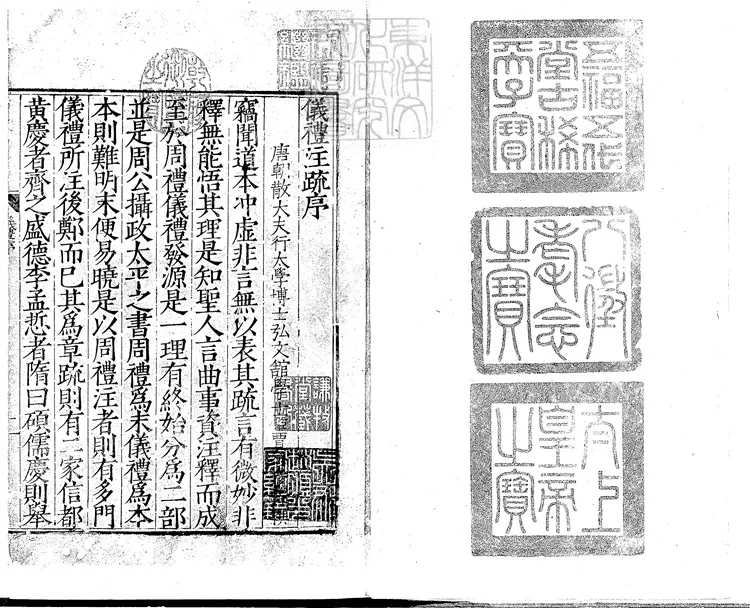 五福五代
堂古稀
天子寶
八徵
耄念
之寶
太上
皇帝
之寶
東洋文
化研究
儀禮注疏序
唐朝散大夫行太學博士弘文館 賈
竊聞道本冲虛非言無以表其疏言有微妙非
釋無能悟其理是知聖人言曲事資注釋而成
至於周禮儀禮發源是一理有終始分爲二部
並是周公攝政太平之書周禮爲末儀禮爲本
本則難明末便易曉是以周禮注者則有多門
儀禮所注後鄭而已其爲章疏則有二家信都
黃慶者齊之盛德李孟悊者隋曰碩儒慶則舉